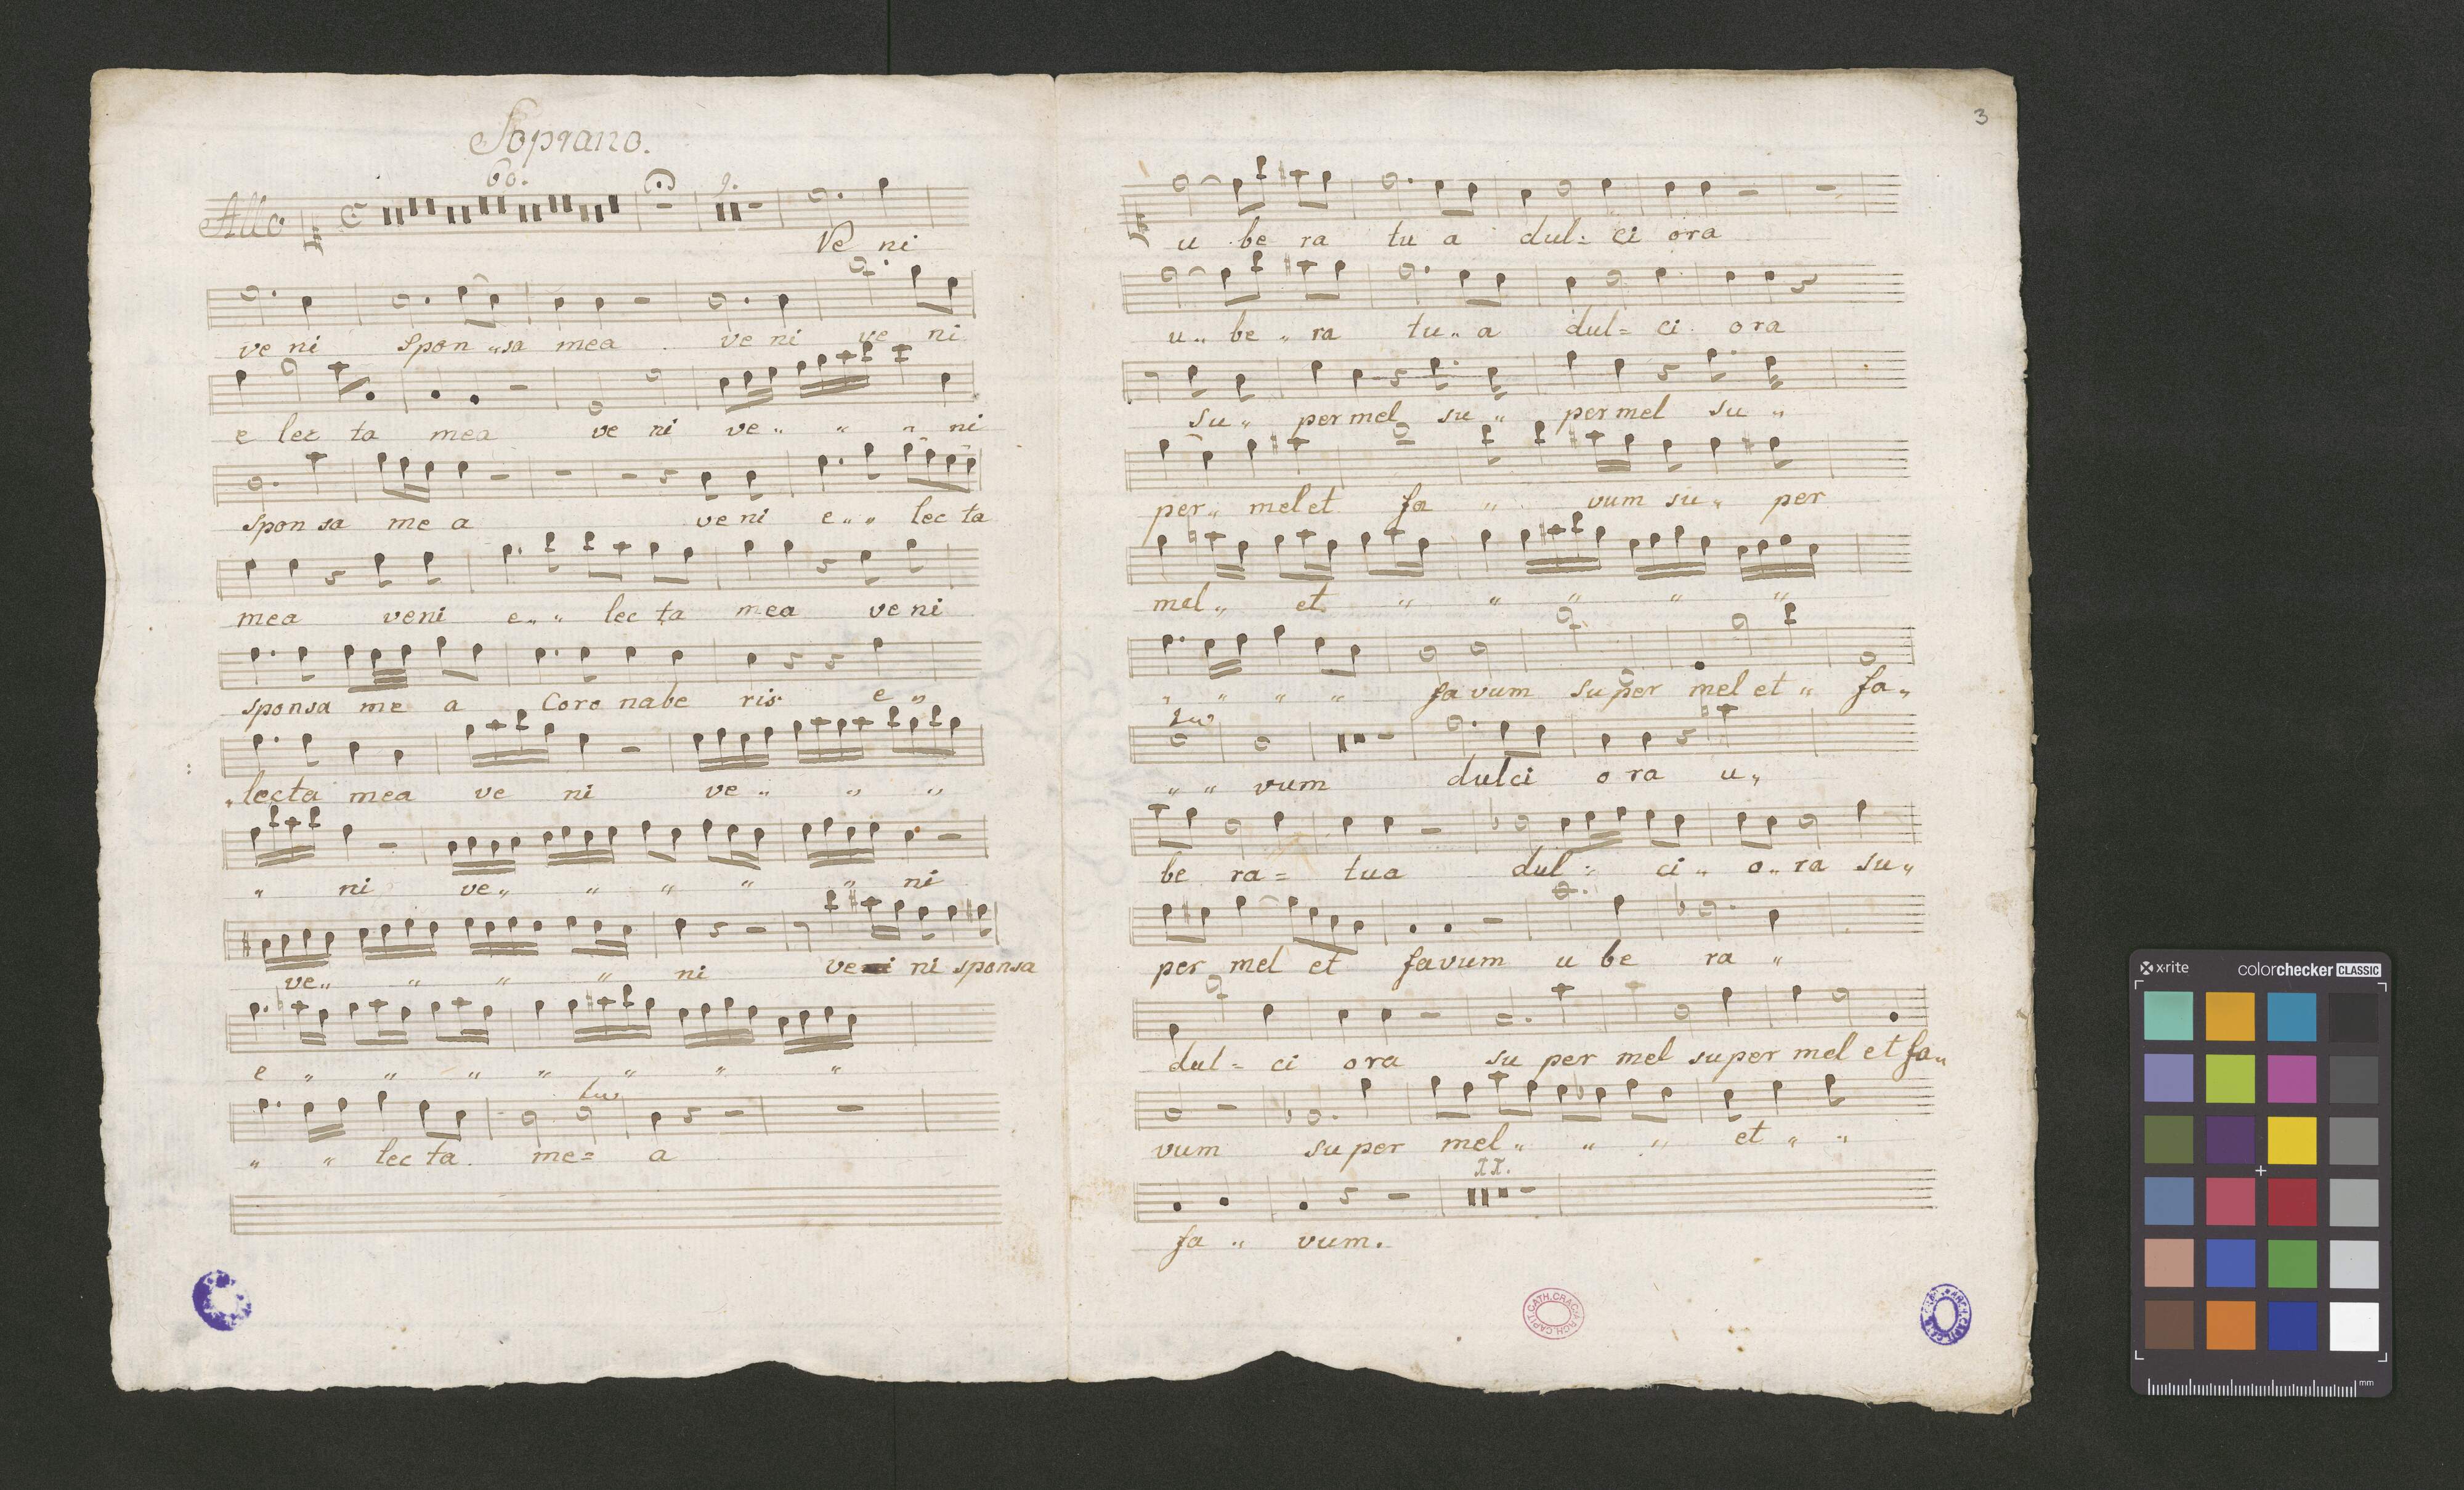 Soprano.
60.
Allo 9.
Ve ni
ve ni Spon „ sa mea ve ni ve ni
e lec ta mea ve ni ve „ „ „ ni
spon sa me a ve ni e „ „ lec ta
mea veni e „ „ lec ta mea ve ni
sponsa me a Coro nabe ris e „
„ lecta mea ve ni ve „ „ „
„ ni ve „ „ „ „ „ ni
ve „ „ „ „ ni ve ni sponsa
e „ „ „ „ „ „ „
„ „ lec ta me= a
3
u be ra tu a dul= ci ora
u „ be „ ra tu „ a dul= ci ora
su „ per mel su „ per mel su „
per „ mel et fa „ vum su „ per
mel „ et „ „ „ „ „
„ „ „ „ favum super mel et „ fa „
„ „ vum dulci ora u „
be ra= tua dul= ci „ o „ ra su „
per mel et favum u be ra „
dul= ci ora su per mel super mel et fa „
vum super mel „ „ „ et „ „
II.
fa „ vum.
ARCH.CAPIT.CATH.CRAC.
x·rite colorchecker CLASSIC
mm